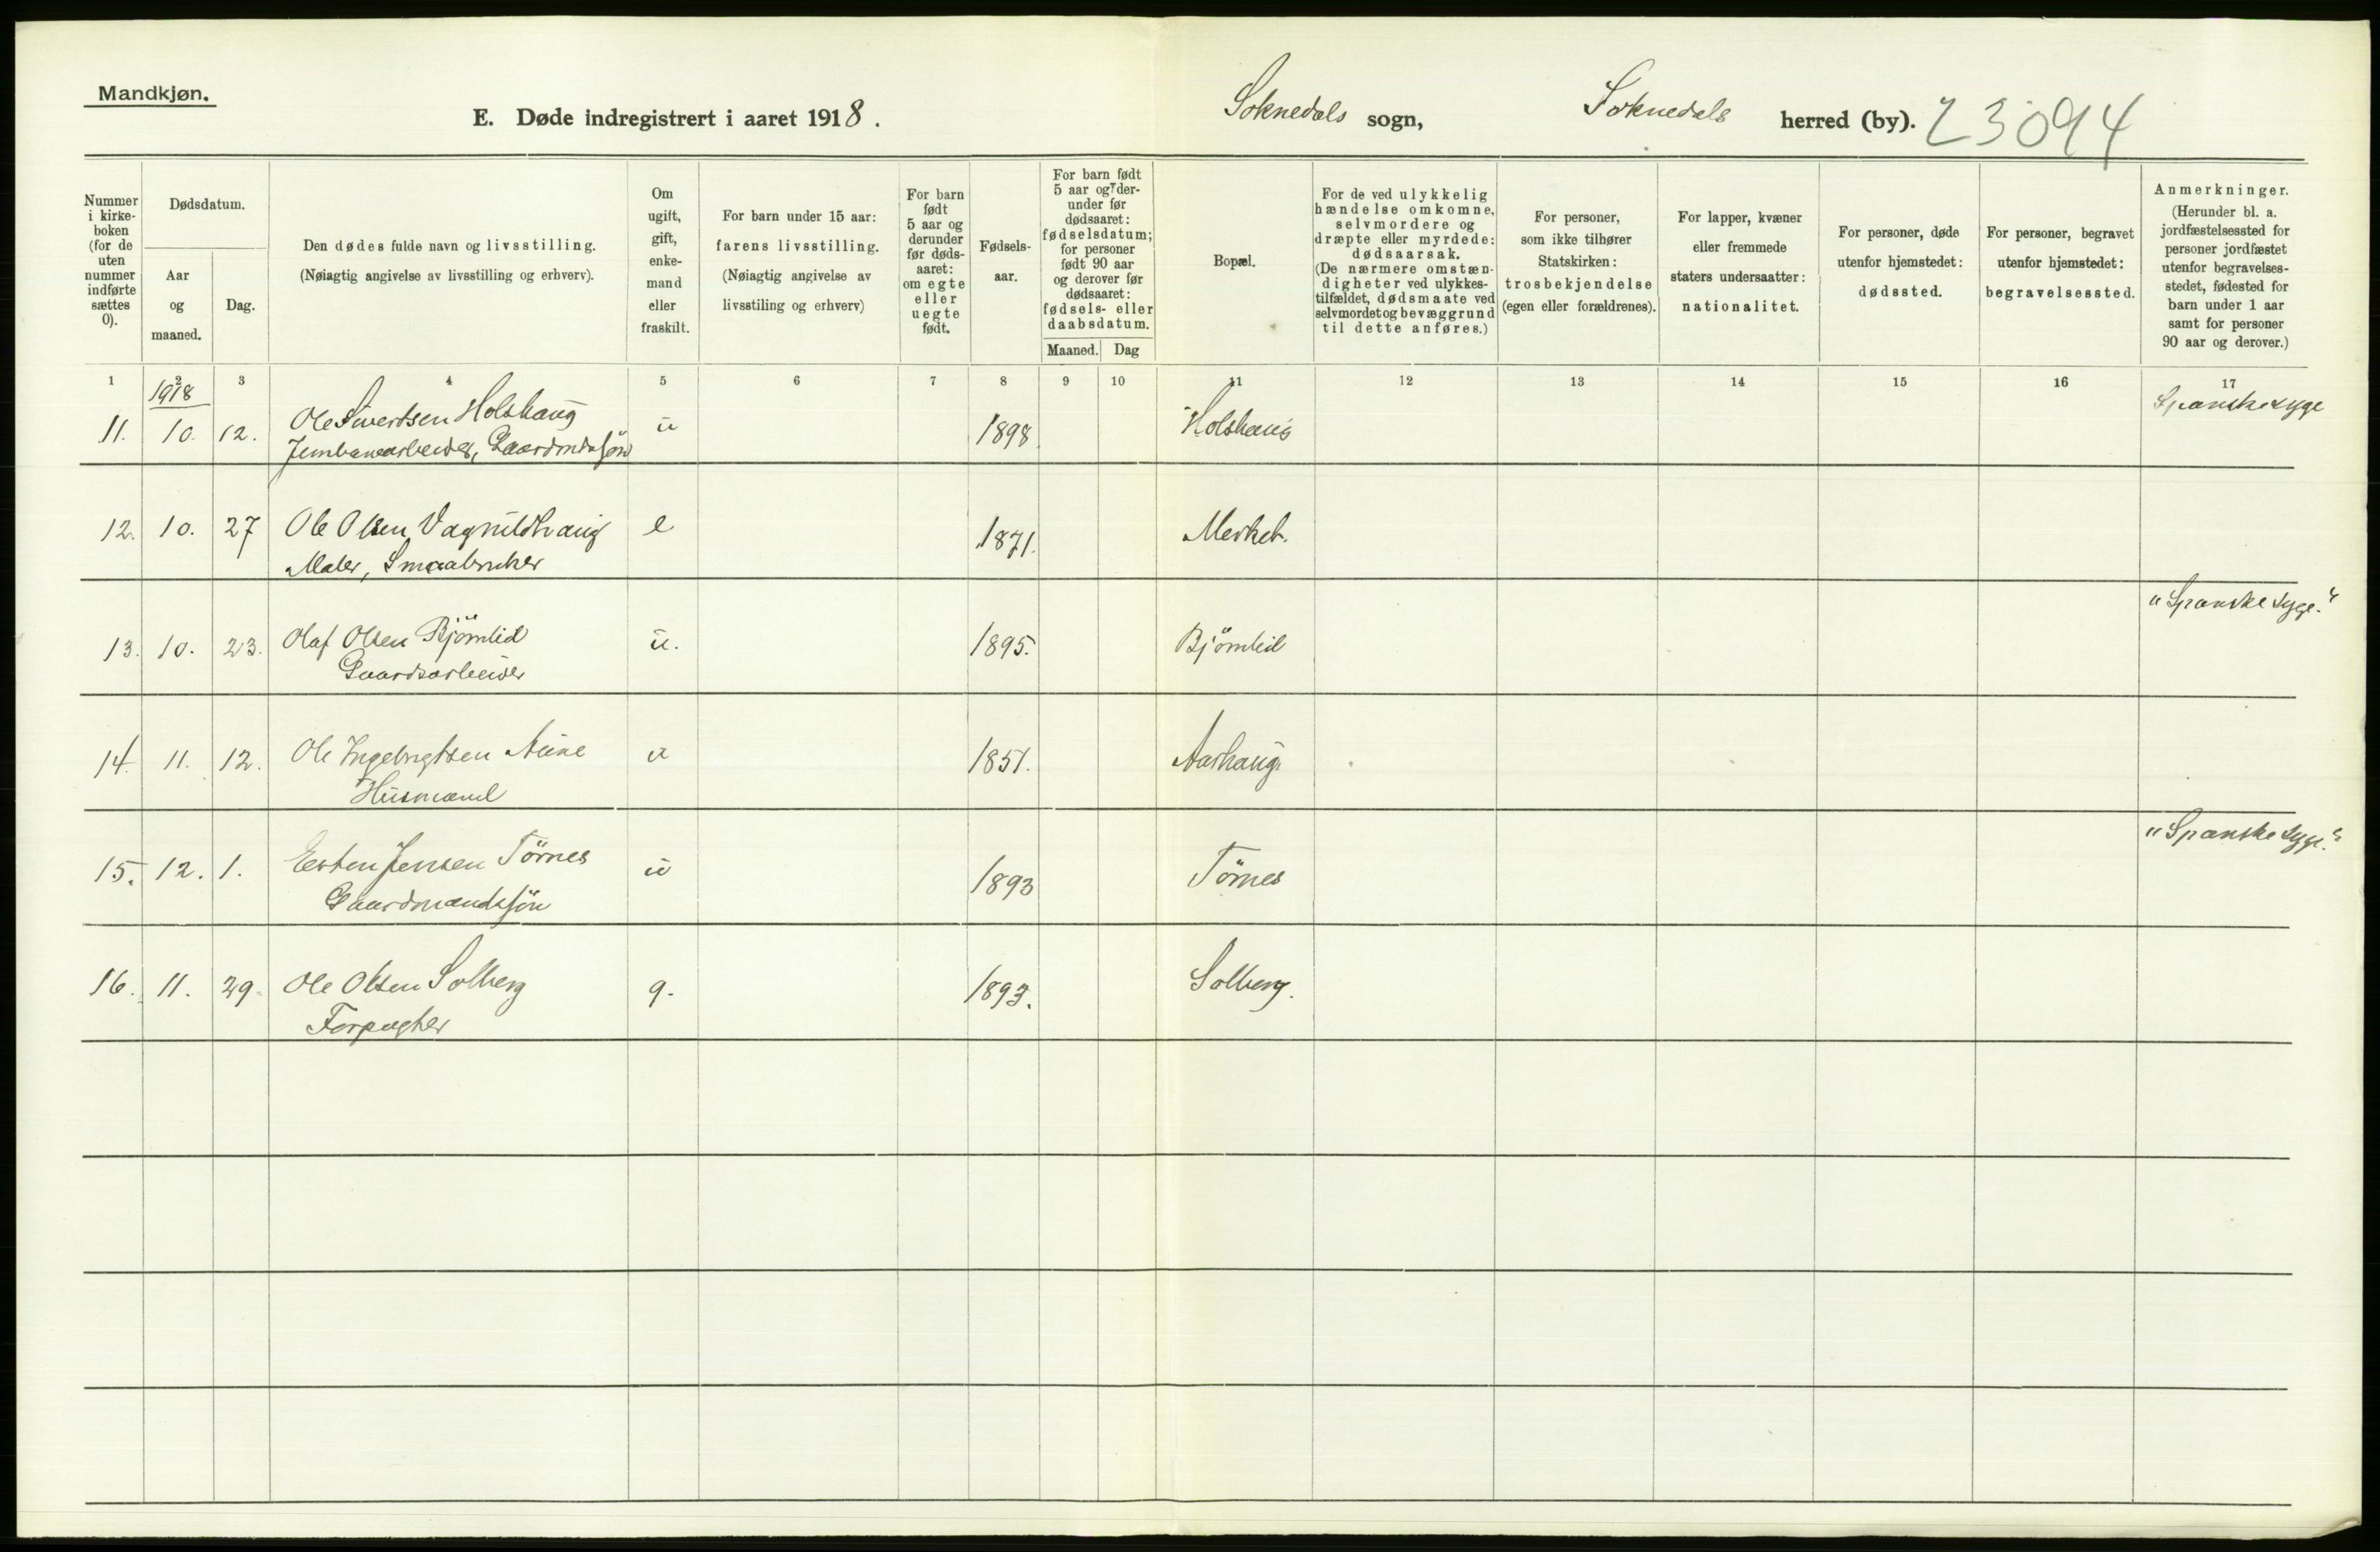 Mandkjøn.
E. Døde indregistrert i aaret 1918.
Soknedals sogn, Soknedals herred (by). 23094
Nummer i kirke-boken (for de uten nummer indførte sættes 0).
Dødsdatum.
Aar og maaned.
Dag.
Den dødes fulde navn og livsstilling.
(Nøiagtig angivelse av livsstilling og erhverv).
Om ugift, gift, enke-mand eller fraskilt.
For barn under 15 aar:
farens livsstilling.
(Nøiagtig angivelse av
livsstiling og erhverv)
For barn født 5 aar og derunder før døds-aaret: om egte eller uegte født.
Fødsels-aar.
For barn født 5 aar og der-under før dødsaaret: fødselsdatum; for personer født 90 aar og derover før dødsaaret: fødsels- eller daabsdatum.
Maaned. Dag
Bopæl.
For de ved ulykkelig hændelse omkomne, selvmordere og dræpte eller myrdede: dødsaarsak.
(De nærmere omstæn-digheter ved ulykkes-tilfældet, dødsmaate ved selvmordet og bevæggrund til dette anføres.)
For personer, som ikke tilhører Statskirken: trosbekjendelse (egen eller forældrenes).
For lapper, kvæner eller fremmede staters undersaatter: nationalitet.
For personer, døde utenfor hjemstedet: dødssted.
For personer, begravet utenfor hjemstedet: begravelsessted.
Anmerkninger.
(Herunder bl. a. jordfæstelsessted for personer jordfæstet utenfor begravelses-stedet, fødested for barn under 1 aar samt for personer 90 aar og derover.)
1 2 3 4 5 6 7 8 9 10 11 12 13 14 15 16 17
1918
11. 10. 12. Ole Sivertsen Holshaug u 1898 Holshaug Spanske syge
Jernbanearbeider, Gaardmdssøn
12. 10. 27 Ole Olsen Vagnildhaug e 1871. Merket.
Maler, Smaabruker
13. 10. 23. Olaf Olsen Bjørnlid u. 1895. Bjørnlid "Spanske syge."
Gaardsarbeider
14. 11. 12. Ole Ingebrigtsen Aune u 1851. Aashaug
Husmand
15. 12. 1. Esten Jensen Törnes u 1893 Törnes "Spanske syge."
Gaardmandssøn
16. 11. 29. Ole Olsen Solberg g. 1893. Solberg.
Forpagter